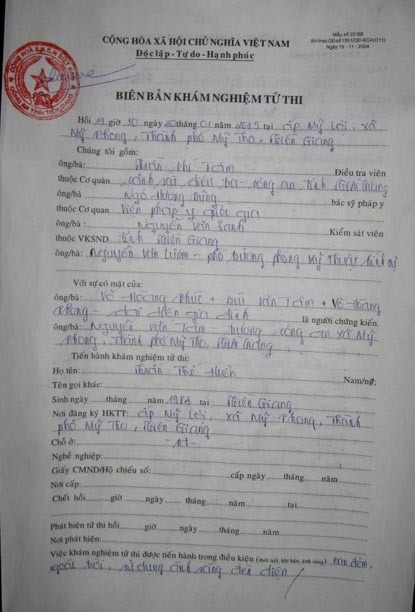 Mẫu số 20 BB
BH theo QĐ số 1351/QĐ-BCA(C11)
Ngày 18 - 11 - 2004
CỘNG HÒA XÃ HỘI CHỦ NGHĨA VIỆT NAM
Độc lập - Tự do - Hạnh phúc
BIÊN BẢN KHÁM NGHIỆM TỬ THI
Hồi 19 giờ 10 ngày 20 tháng 01 năm 2015 tại ấp Mỹ Lợi, xã
Mỹ Phong, Thành phố Mỹ Tho, Tiền Giang
Chúng tôi gồm:
ông/bà: Điều tra viên
thuộc Cơ quan công an tỉnh Tiền Giang
ông/bà bác sỹ pháp y
thuộc Cơ quan Viện pháp y quốc gia
ông/bà: Nguyễn Văn Kiểm sát viên
thuộc VKSND tỉnh Tiền Giang
ông/bà: Nguyễn Văn - phó trưởng phòng kỹ thuật hình sự
Với sự có mặt của:
ông/bà: Võ Hoàng Phúc + Bùi Văn + Võ Hoàng
đại diện gia đình là người chứng kiến.
ông/bà: Nguyễn Văn - trưởng công an xã Mỹ
Phong, Thành phố Mỹ Tho, Tiền Giang
Tiến hành khám nghiệm tử thi:
Họ tên: Thế Hiển Nam/nữ:
Tên gọi khác:
Sinh ngày tháng năm 1984 tại Tiền Giang
Nơi đăng ký HKTT: ấp Mỹ Lợi, xã Mỹ Phong, Thành
phố Mỹ Tho, Tiền Giang
Chỗ ở: -nt-
Nghề nghiệp:
Giấy CMND/Hộ chiếu số: cấp ngày tháng năm
Nơi cấp:
Chết hồi giờ ngày tháng năm tại
Phát hiện tử thi hồi giờ ngày tháng năm
Nơi phát hiện:
Việc khám nghiệm tử thi được tiến hành trong điều kiện ban đêm,
ngoài trời, sử dụng ánh sáng đèn điện